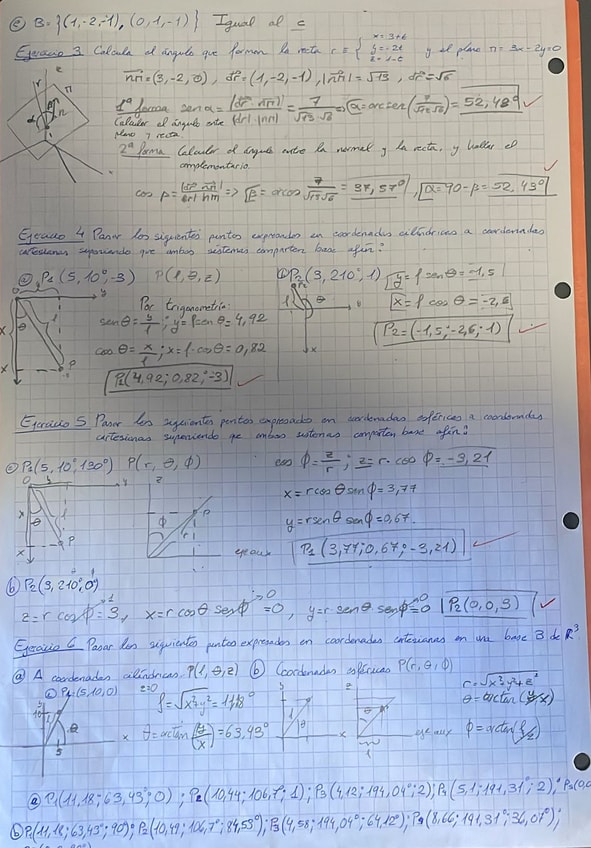 e) B = {(1,-2,-1), (0,1,-1)} Igual al c
Ejercicio 3 Calcula el ángulo que forman la recta r ≡ { x = 3+t y = -2t z = 1-t y el plano π = 3x-2y=0
nπ = (3,-2,0), dr = (1,-2,-1), |nπ| = √13, dr = √6
1ª forma sen α = |dr · nπ| / |dr| |nπ| = 7/√13·√6 ⇒ α = arcsen (7/√13·√6) = 52,43º
Calcular el ángulo entre
plano y recta.
2ª forma Calcular el ángulo entre la normal y la recta, y hallar el
complementario.
cos β = |dr nπ| ⇒ β = arcos 7/√13√6 = 37,57º, α = 90 - β = 52,43º
Ejercicio 4 Pasar los siguientes puntos expresados en coordenadas cilíndricas a coordenadas
cartesianas suponiendo que ambos sistemas comparten base afín:
a) P1 (5,10º,-3) P(ρ, θ, z)
b) P2 (3, 210º, 1) y = ρ sen θ = -1,5
x = ρ cos θ = -2,6
P2 = (-1,5; -2,6; 1)
Por trigonometría:
sen θ = y/ρ; y = ρ sen θ = 4,92
cos θ = x/ρ; x = ρ · cos θ = 0,82
P1 (4,92; 0,82; -3)
Ejercicio 5 Pasar los siguientes puntos expresado en coordenadas esféricas a coordenadas
cartesianas suponiendo que ambos sistemas comparten base afín:
a) P1 (5, 10º, 130º) P(r, θ, ϕ)
cos ϕ = z/r; z = r · cos ϕ = -3,21
x = r cos θ sen ϕ = 3,77
y = r sen θ sen ϕ = 0,67
P1 (3,77; 0,67; -3,21)
b) P2 (3, 210º, 0º)
z = r cos ϕ = 3, x = r cos θ sen ϕ = 0, y = r sen θ sen ϕ = 0 P2 (0,0,3)
Ejercicio 6 Pasar los siguientes puntos expresados en coordenadas cartesianas en una base B de R³.
a) A coordenadas cilíndricas. P(ρ, θ, z) b) Coordenadas esféricas P(r, θ, ϕ)
a) P1 (5,10,0) z=0
ρ = √x²+y² = 11,18
θ = arctan (y/x) = 63,43º
r = √x²+y²+z²
θ = arctan (y/x)
ϕ = arctan (ρ/z)
a) P1 (11,18; 63,43º; 0); P2 (10,44; 106,7º; 1); P3 (4,12; 194,04º; 2); P4 (5,1; 191,31º; 2);
b) P1 (11,18; 63,43º; 90º); P2 (10,49; 106,7º; 84,53º); P3 (4,58; 194,04º; 64,12º); P4 (8,66; 191,31º; 36,07º);